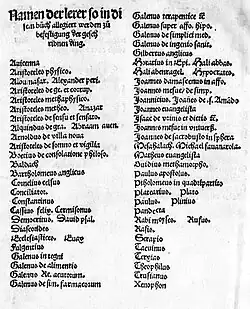 Namen der lerer so in di
sem büch allegiert werden zů
befestigung der gesch
ribnen ding.
Auicenna
Aristoteles physico.
Alba nasar. Alexander peri.
Aristoteles de ge. et corrup.
Aristoteles methaphysico.
Aristoteles metheo. Anazar
Aristoteles de sensu et sensato.
Alquindus de gra. Abraam auen.
Arnoldus de villa noua
Aristoteles de somno et vigilia
Boetius de consolatione philoso.
Baldach
Bartholomeus anglicus
Cornelius celsus
Conciliator.
Constantinus
Cassius felix. Cermisonus
Democritus. Dauid psal.
Diascorides
Ecclesiasticus. Euax
Fulgentius
Galenus in tegni
Galenus de alimentis
Galenus Re. acutorum.
Galenus de sim. farmacorum
Galenus terapentice
Galenus super affo. Hypo.
Galenus de simplici med.
Galenus de ingenio sanit.
Gilbertus anglicus
Horatius in Epi. Hali abbas.
Hali abenragel. Hypocrates.
Joannes damascenus in affo.
Joannes mesue de simp.
Joannicius. Joannes de s. Amando
Joannes euangelista
Isaac de vrinis et dietis
Joannes mesue in vniuersi.
Joannes de sacrobusto in sphera
Mesahalach. Michael sauanarola.
Matheus euangelista
Ouidius methamorpho.
Paulus apostolus.
Ptholomeus in quadripartito
Platearius. Plato
Paulus. Plinius
Pandecta
Rabi moyses. Rufus.
Rasis.
Serapio
Tacuinus
Theophilus
Trusianus
Xenophon